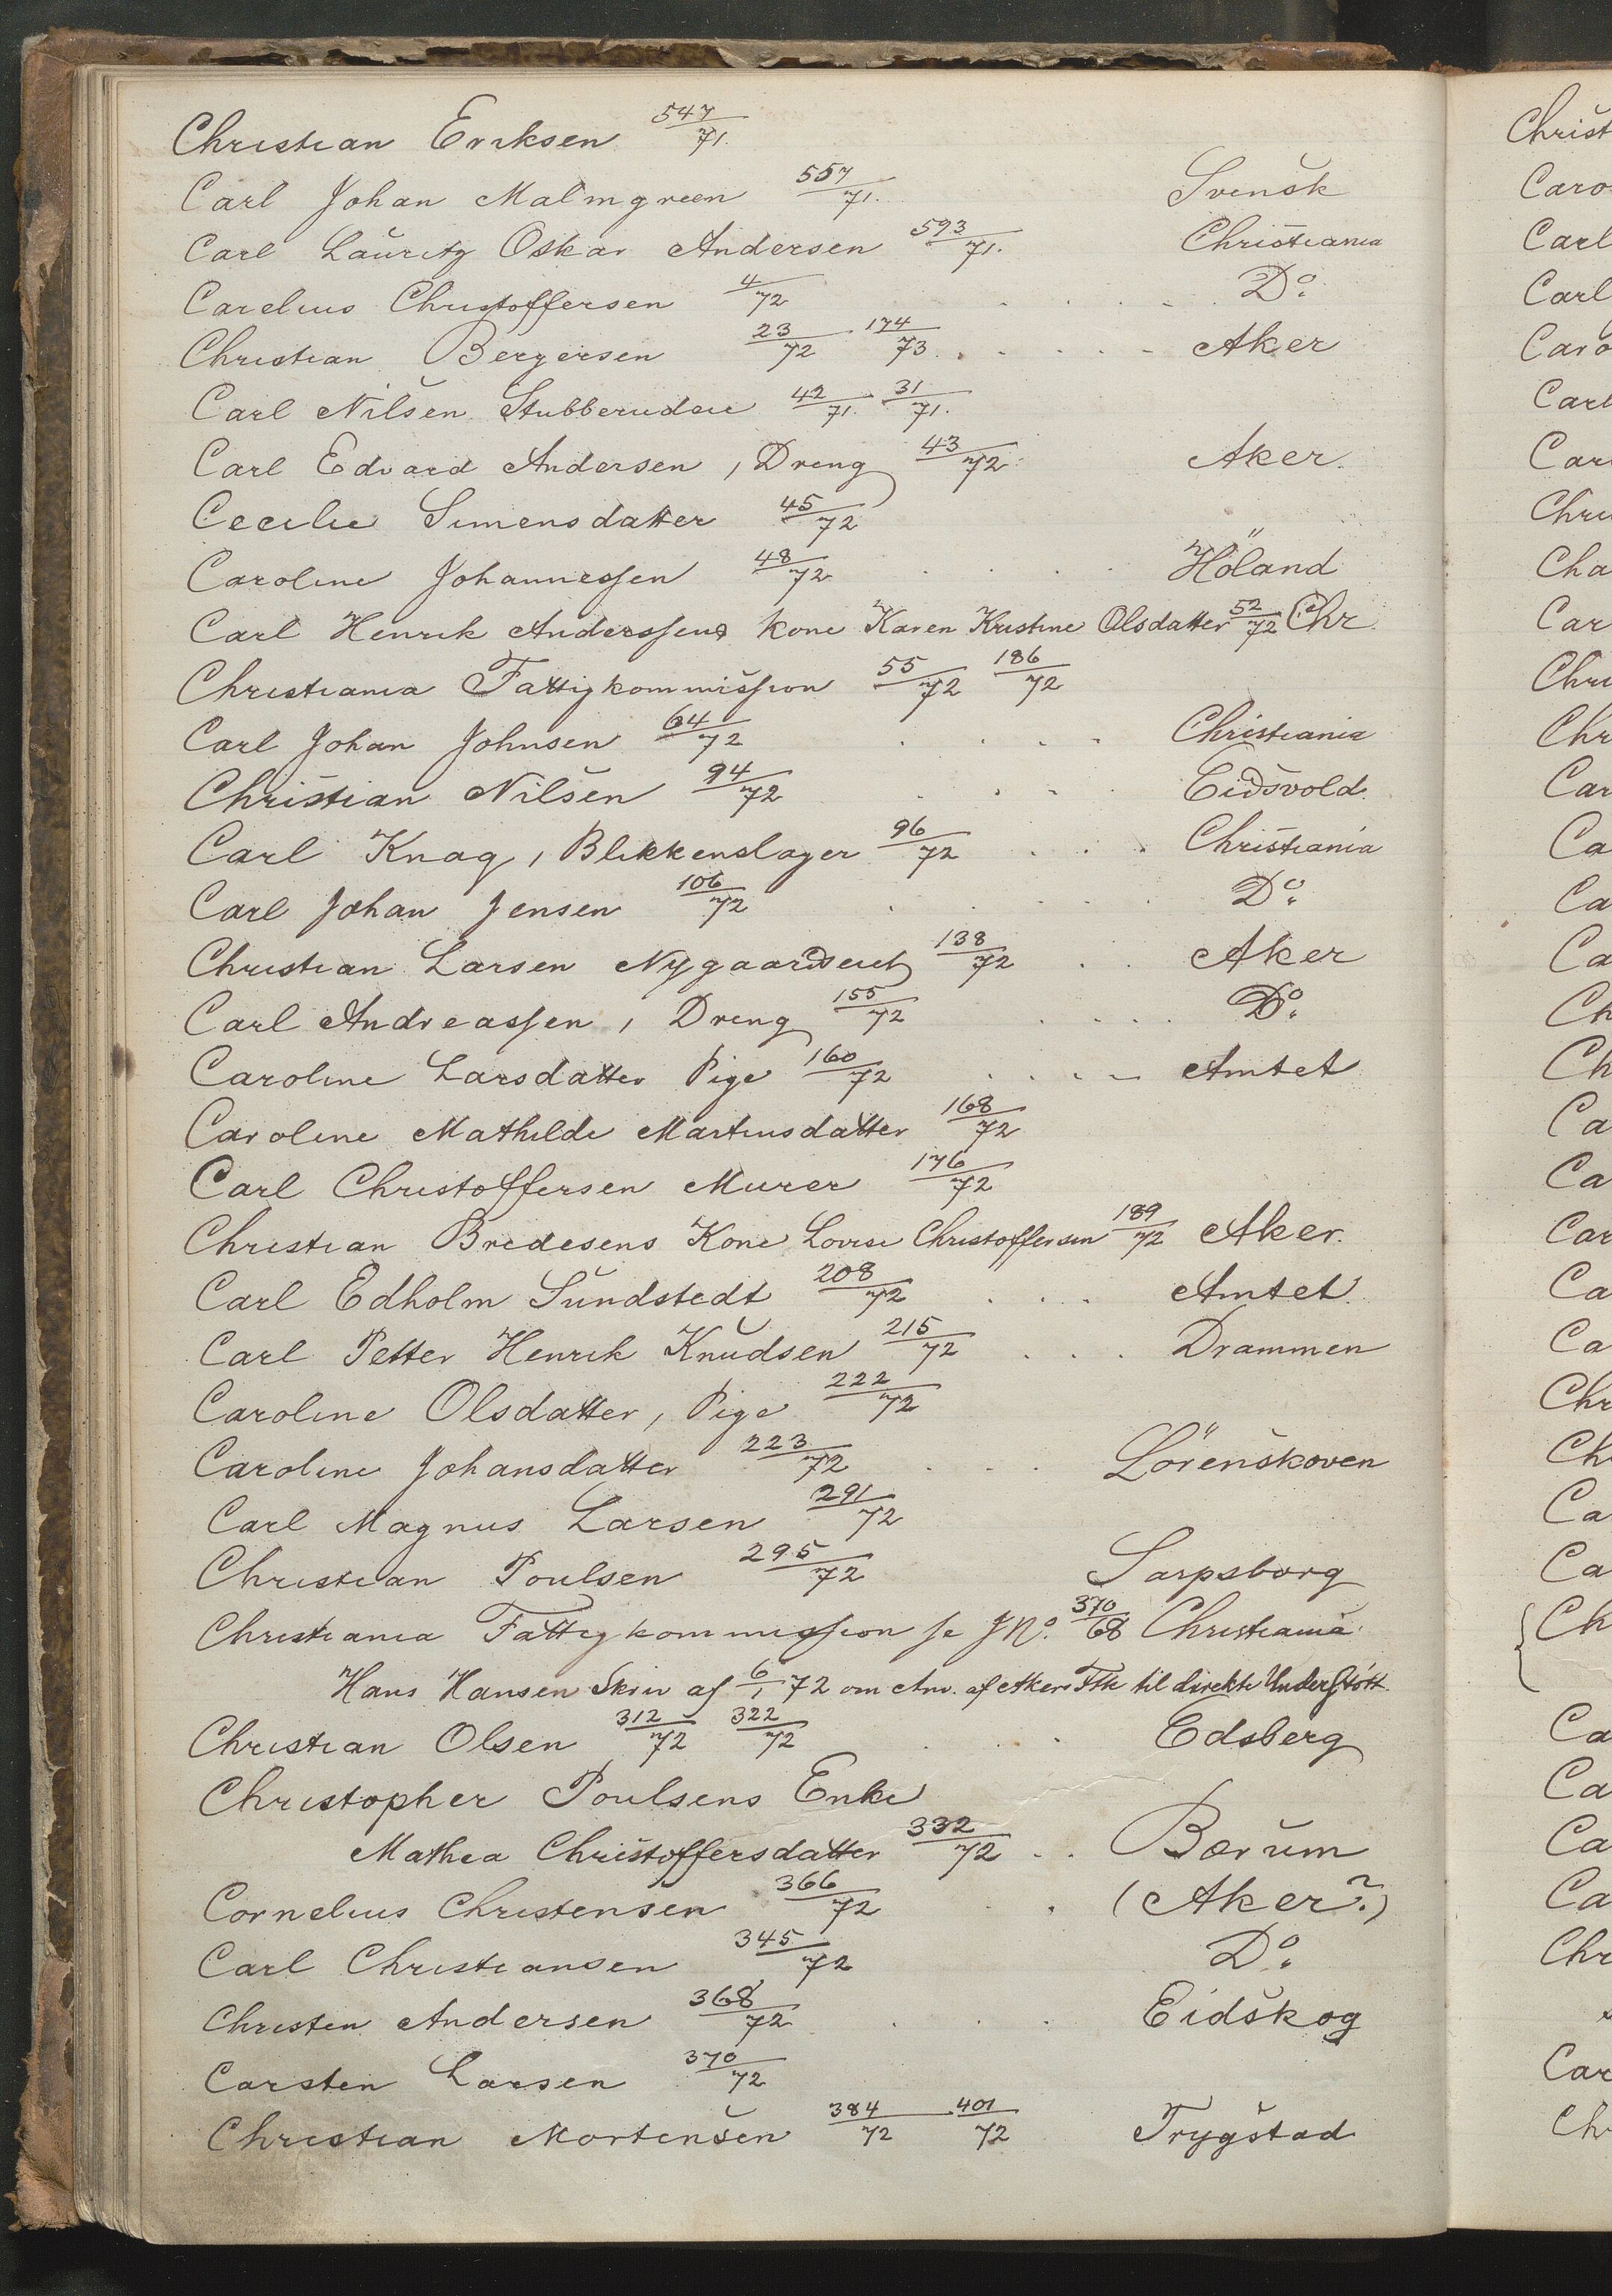 Christian Eriksen 547/71.
Carl Johan Malmgreen 557/71. Svensk
Carl Lauritz Oskar Andersen 593/71. Christiania
Carelius Christoffersen 4/72 . . . . Do.
Christian Bergersen 23/72 174/73 . . . . . Aker
Carl Nilsen Stubberudeie 42/71. 31/71.
Carl Edvard Andersen, Dreng 43/72 Aker.
Cecilie Simensdatter 45/72
Caroline Johannessen 48/72 . . . . Höland
Carl Henrik Anderssens kone Karen Kristine Olsdatter 52/72 Chr.
Christiania Fattigkommission 55/72 186/72
Carl Johan Johnsen 64/72 . . . . Christiania
Christian Nilsen 94/72 . . . . Eidsvold.
Carl Knag, Blikkenslager 96/72 . . . Christiania
Carl Johan Jensen 106/72 . . . . Do.
Christian Larsen Nygaardseiet 138/72 . . Aker
Carl Andreassen, Dreng 155/72 . . . . Do.
Caroline Larsdatter Pige 160/72 . . . . Amtet
Caroline Mathilde Martinsdatter 168/72
Carl Christoffersen Murer 176/72
Christian Bredesens Kone Lovise Christoffersen 189/72 Aker.
Carl Edholm Sundstedt 208/72 . . . Amtet.
Carl Petter Henrik Knudsen 215/72 . . . Drammen
Caroline Olsdatter, Pige 222/72
Caroline Johansdatter 223/72 . . . Lörenskoven
Carl Magnus Larsen 291/72
Christian Poulsen 295/72 Sarpsborg
Christiania Fattigkommission se JNo. 370/68 Christiania
Hans Hansen Skriv af 6/1 72 om Anv. af Akers Ftk til direkte Understött.
Christian Olsen 312/72 322/72 . . . Edsberg
Christopher Poulsens Enke
Mathea Christoffersdatter 332/72 . . Bærum
Cornelius Christensen 366/72 . . (Aker?)
Carl Christiansen 345/72 Do.
Christen Andersen 368/72 . . . Eidskog
Carsten Larsen 370/72
Christian Mortensen 384/72 401/72 Trygstad